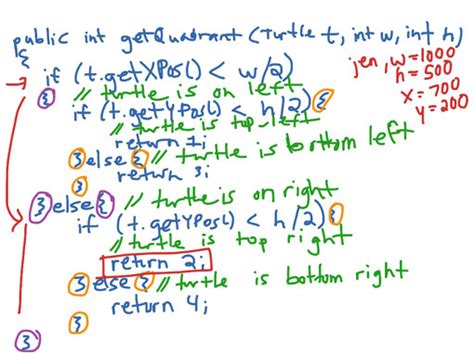 public int getQuadrant (Turtle t, int w, int h)
{
jen, w=1000
h=500
x=700
y=200
if (t.getXPos() < w/2)
{ // turtle is on left
if (t.getYPos() < h/2) {
// turtle is top left
return 1;
} else { // turtle is bottom left
return 3;
}
} else { // turtle is on right
if (t.getYPos() < h/2) {
// turtle is top right
return 2;
} else { // turtle is bottom right
return 4;
}
}